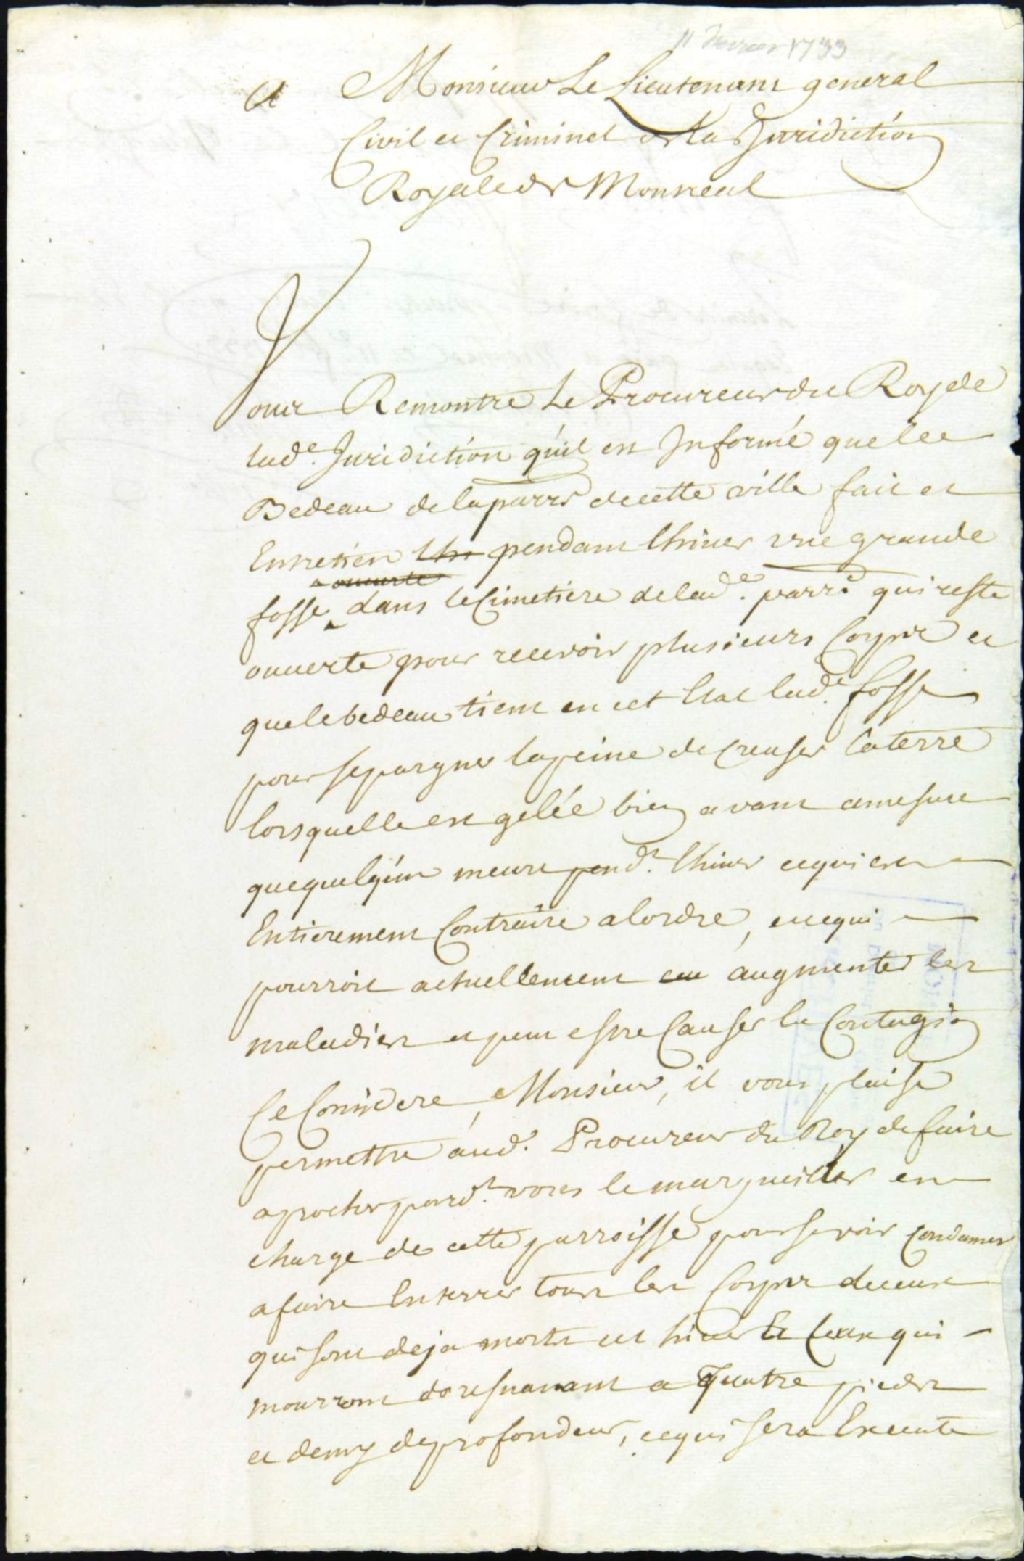 11 fevrier 1733
A Monsieur Le Lieutenant general
Civil et Criminel de La Juridiction
Royale de Monreal
Vour Remontre Le Procureur du Roy de
lad.e Juridiction qu'il est Informé que le
Bedeau de la parrs de cette ville fait et
Entretien pendant lhiuer une grande
ouuerte
fosse dans le Cimetiere de lad.e parr.e qui reste
ouuerte pour recevoir plusieurs Corps et
que le bedeau tient en cet Etat lad.e fosse
pour separgner la peine de Creuser la terre
lors quelle est gelée bien avant amesure
que quelqu'un meure pend.t lhiuer ce qui est
Entierement Contraire alordre, et ce qui
pourroit actuellement augmenter les
maladies et peut estre Causer la Contagion
Ce Consideré, Monsieur, il vous plaise
permettre aud.t Procureur du Roy de faire
aprocher pard.t vous le marguiller en
charge de cette parroisse pour se voir condamner
a faire Enterrer tous les Corps de ceux
qui sont deja morts cet hiuer Et Ceux qui
mourront doresnavant a Quatre pieds
et demy de profondeur, ce qui sera Execute